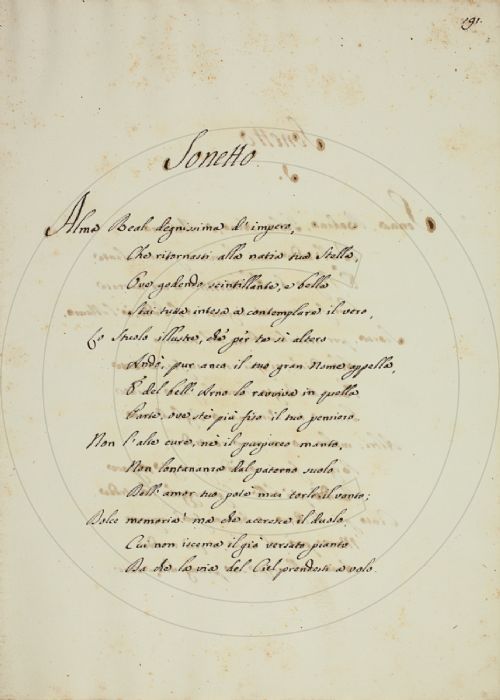 191.
Sonetto.
Alma Real degnissima d'impero,
Che ritornasti alla natia tua Stella,
Ove godendo scintillante, e bella
Stai tutta intesa a contemplare il vero,
Lo Stuolo illustre, che per te sì altero
Andò, pur anco il tuo gran Nome appella,
E del bell'Arno lo ravviva in quella
Parte, ove stè più fiso il tuo pensiero.
Non l'alte cure, nè il purpureo manto,
Non lontananza dal paterno suolo
Bell'amor tuo potè mai torle il vanto;
Dolce memoria! ma che accresce il duolo
Cui non iscema il già versato pianto
Da che la via del Ciel prendesti a volo.